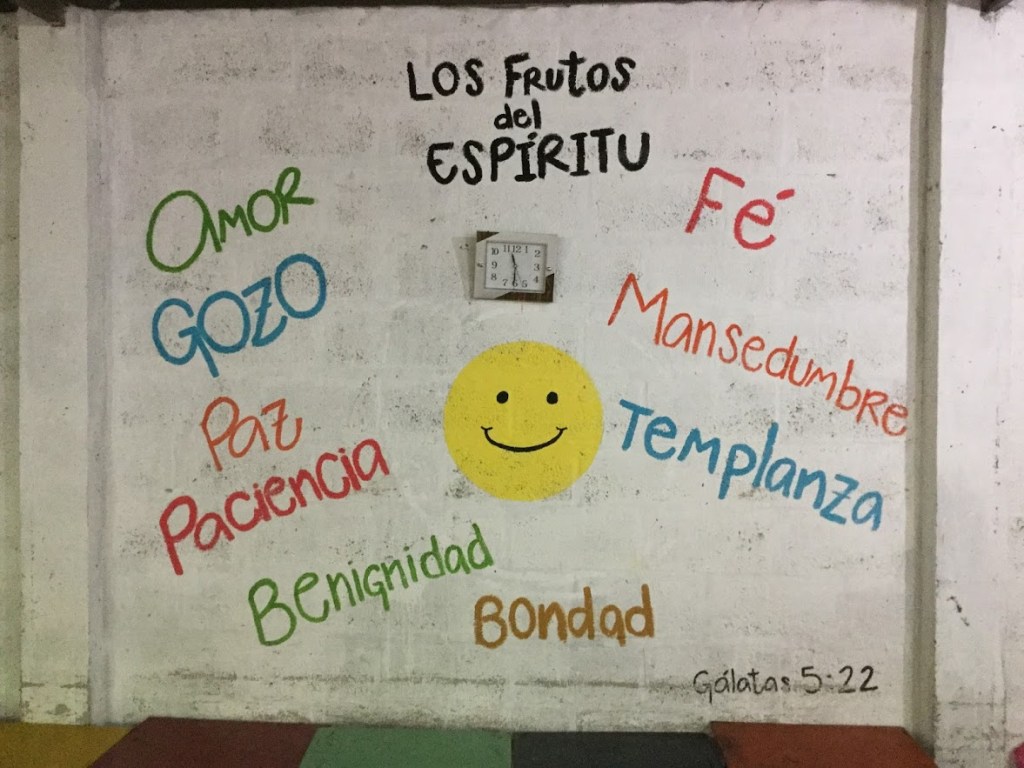 LOS FRUTOS
del
ESPÍRITU
AMOR
GOZO
Paz
Paciencia
Benignidad
Bondad
Fé
Mansedumbre
Templanza
Gálatas 5:22
11 12 1
10 2
9 3
8 4
7 6 5